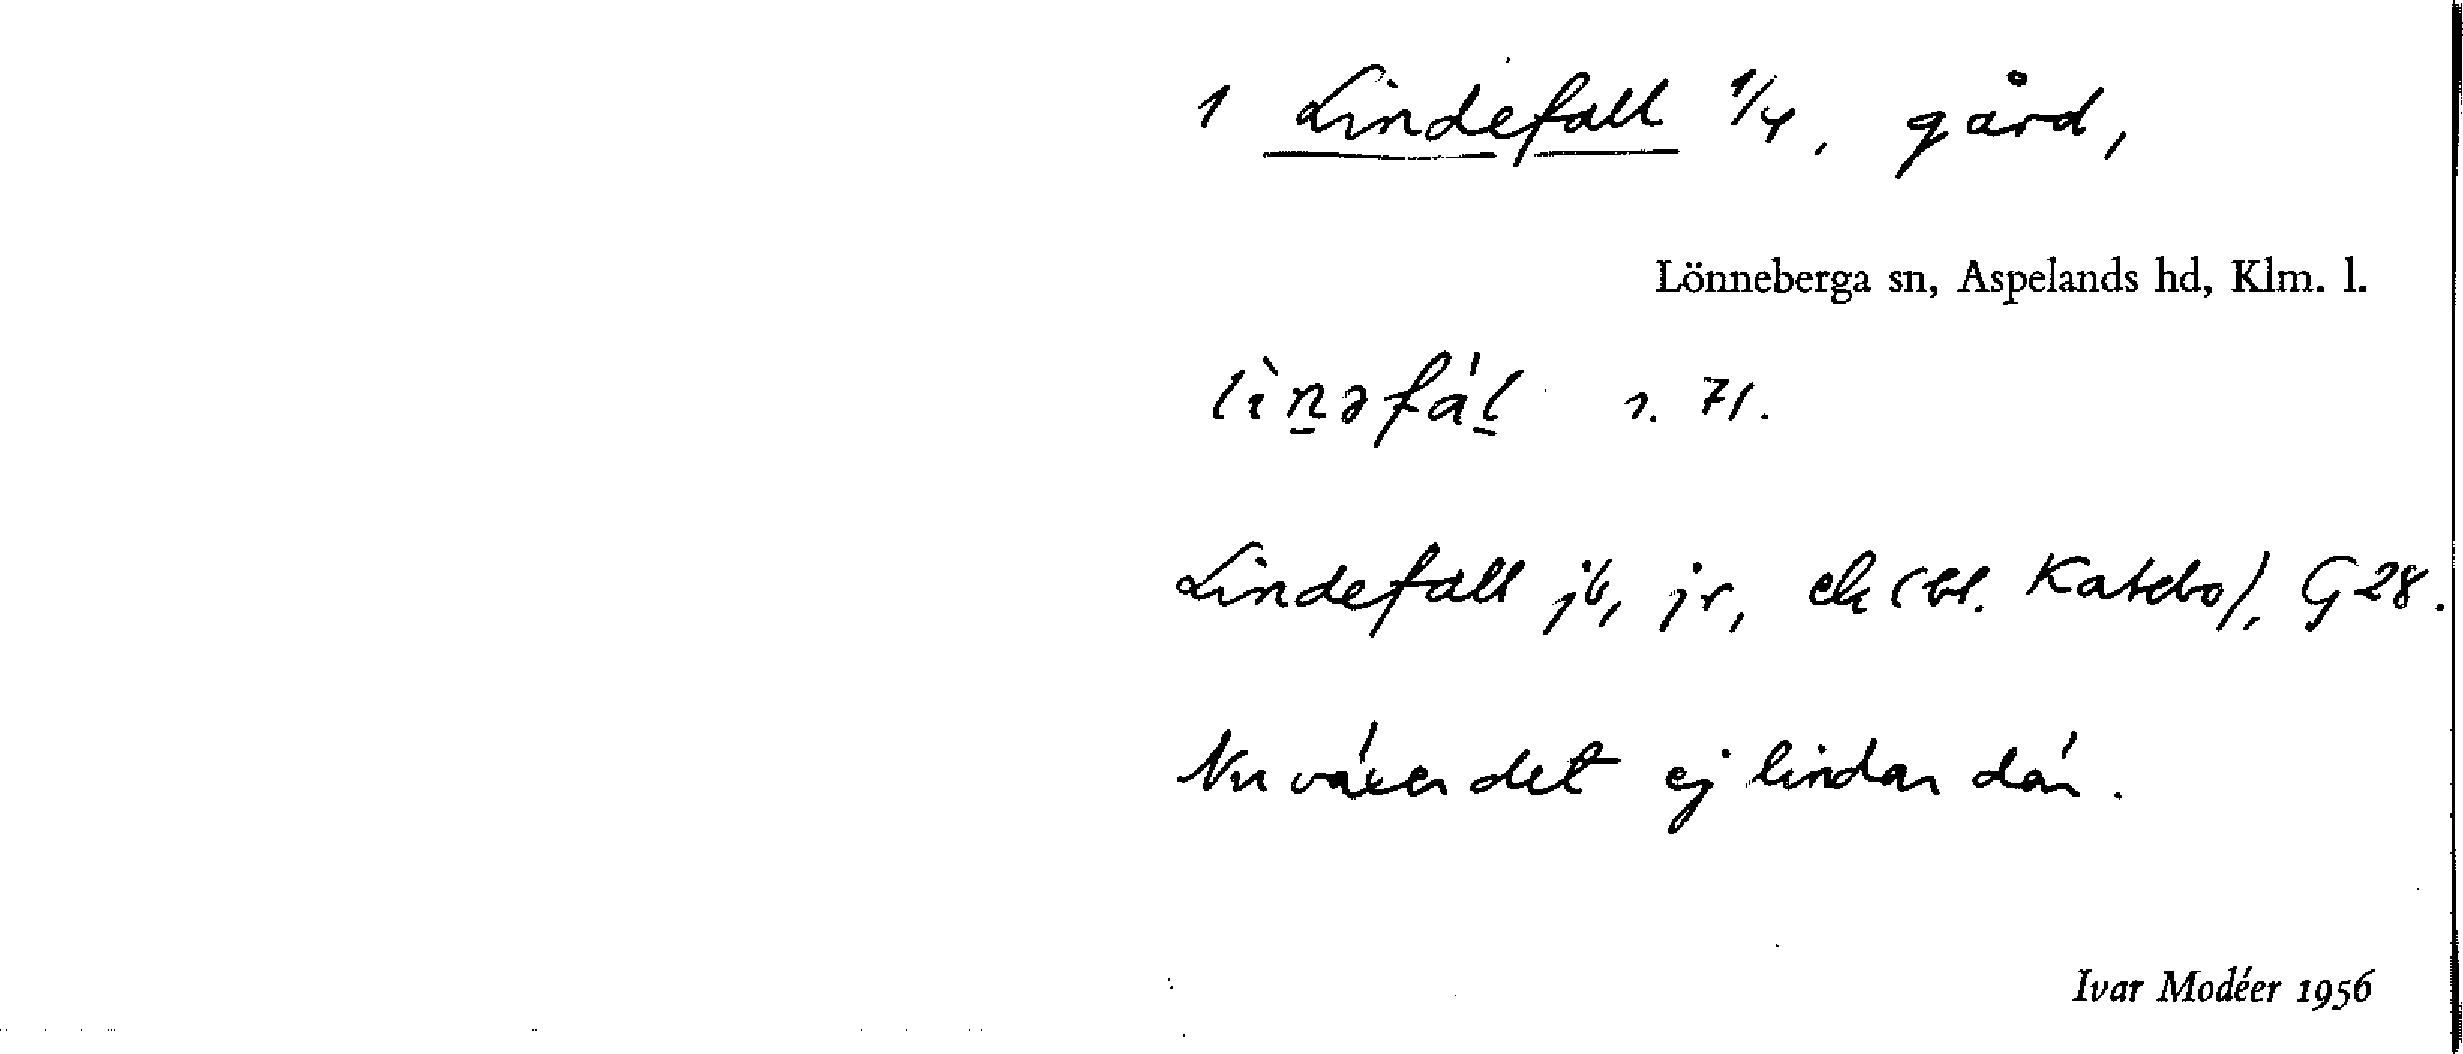 1 Lindefall 1/4, gård,
Lönneberga sn, Aspelands hd, Klm. l.
lìn̲əfál̲ s. 71.
Lindefall jb, jr, ek (bl. Katebo), G 28.
Nu växer det ej lindar där.
Ivar Modéer 1956